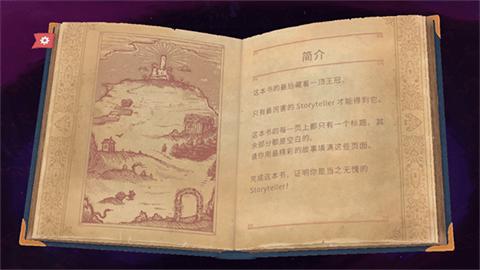 简介
这本书的最后藏着一顶王冠，
只有最厉害的 Storyteller 才能得到它。
这本书的每一页上都只有一个标题，其
余部分都是空白的。
请你用最精彩的故事填满这些页面。
完成这本书，证明你是当之无愧的
Storyteller!